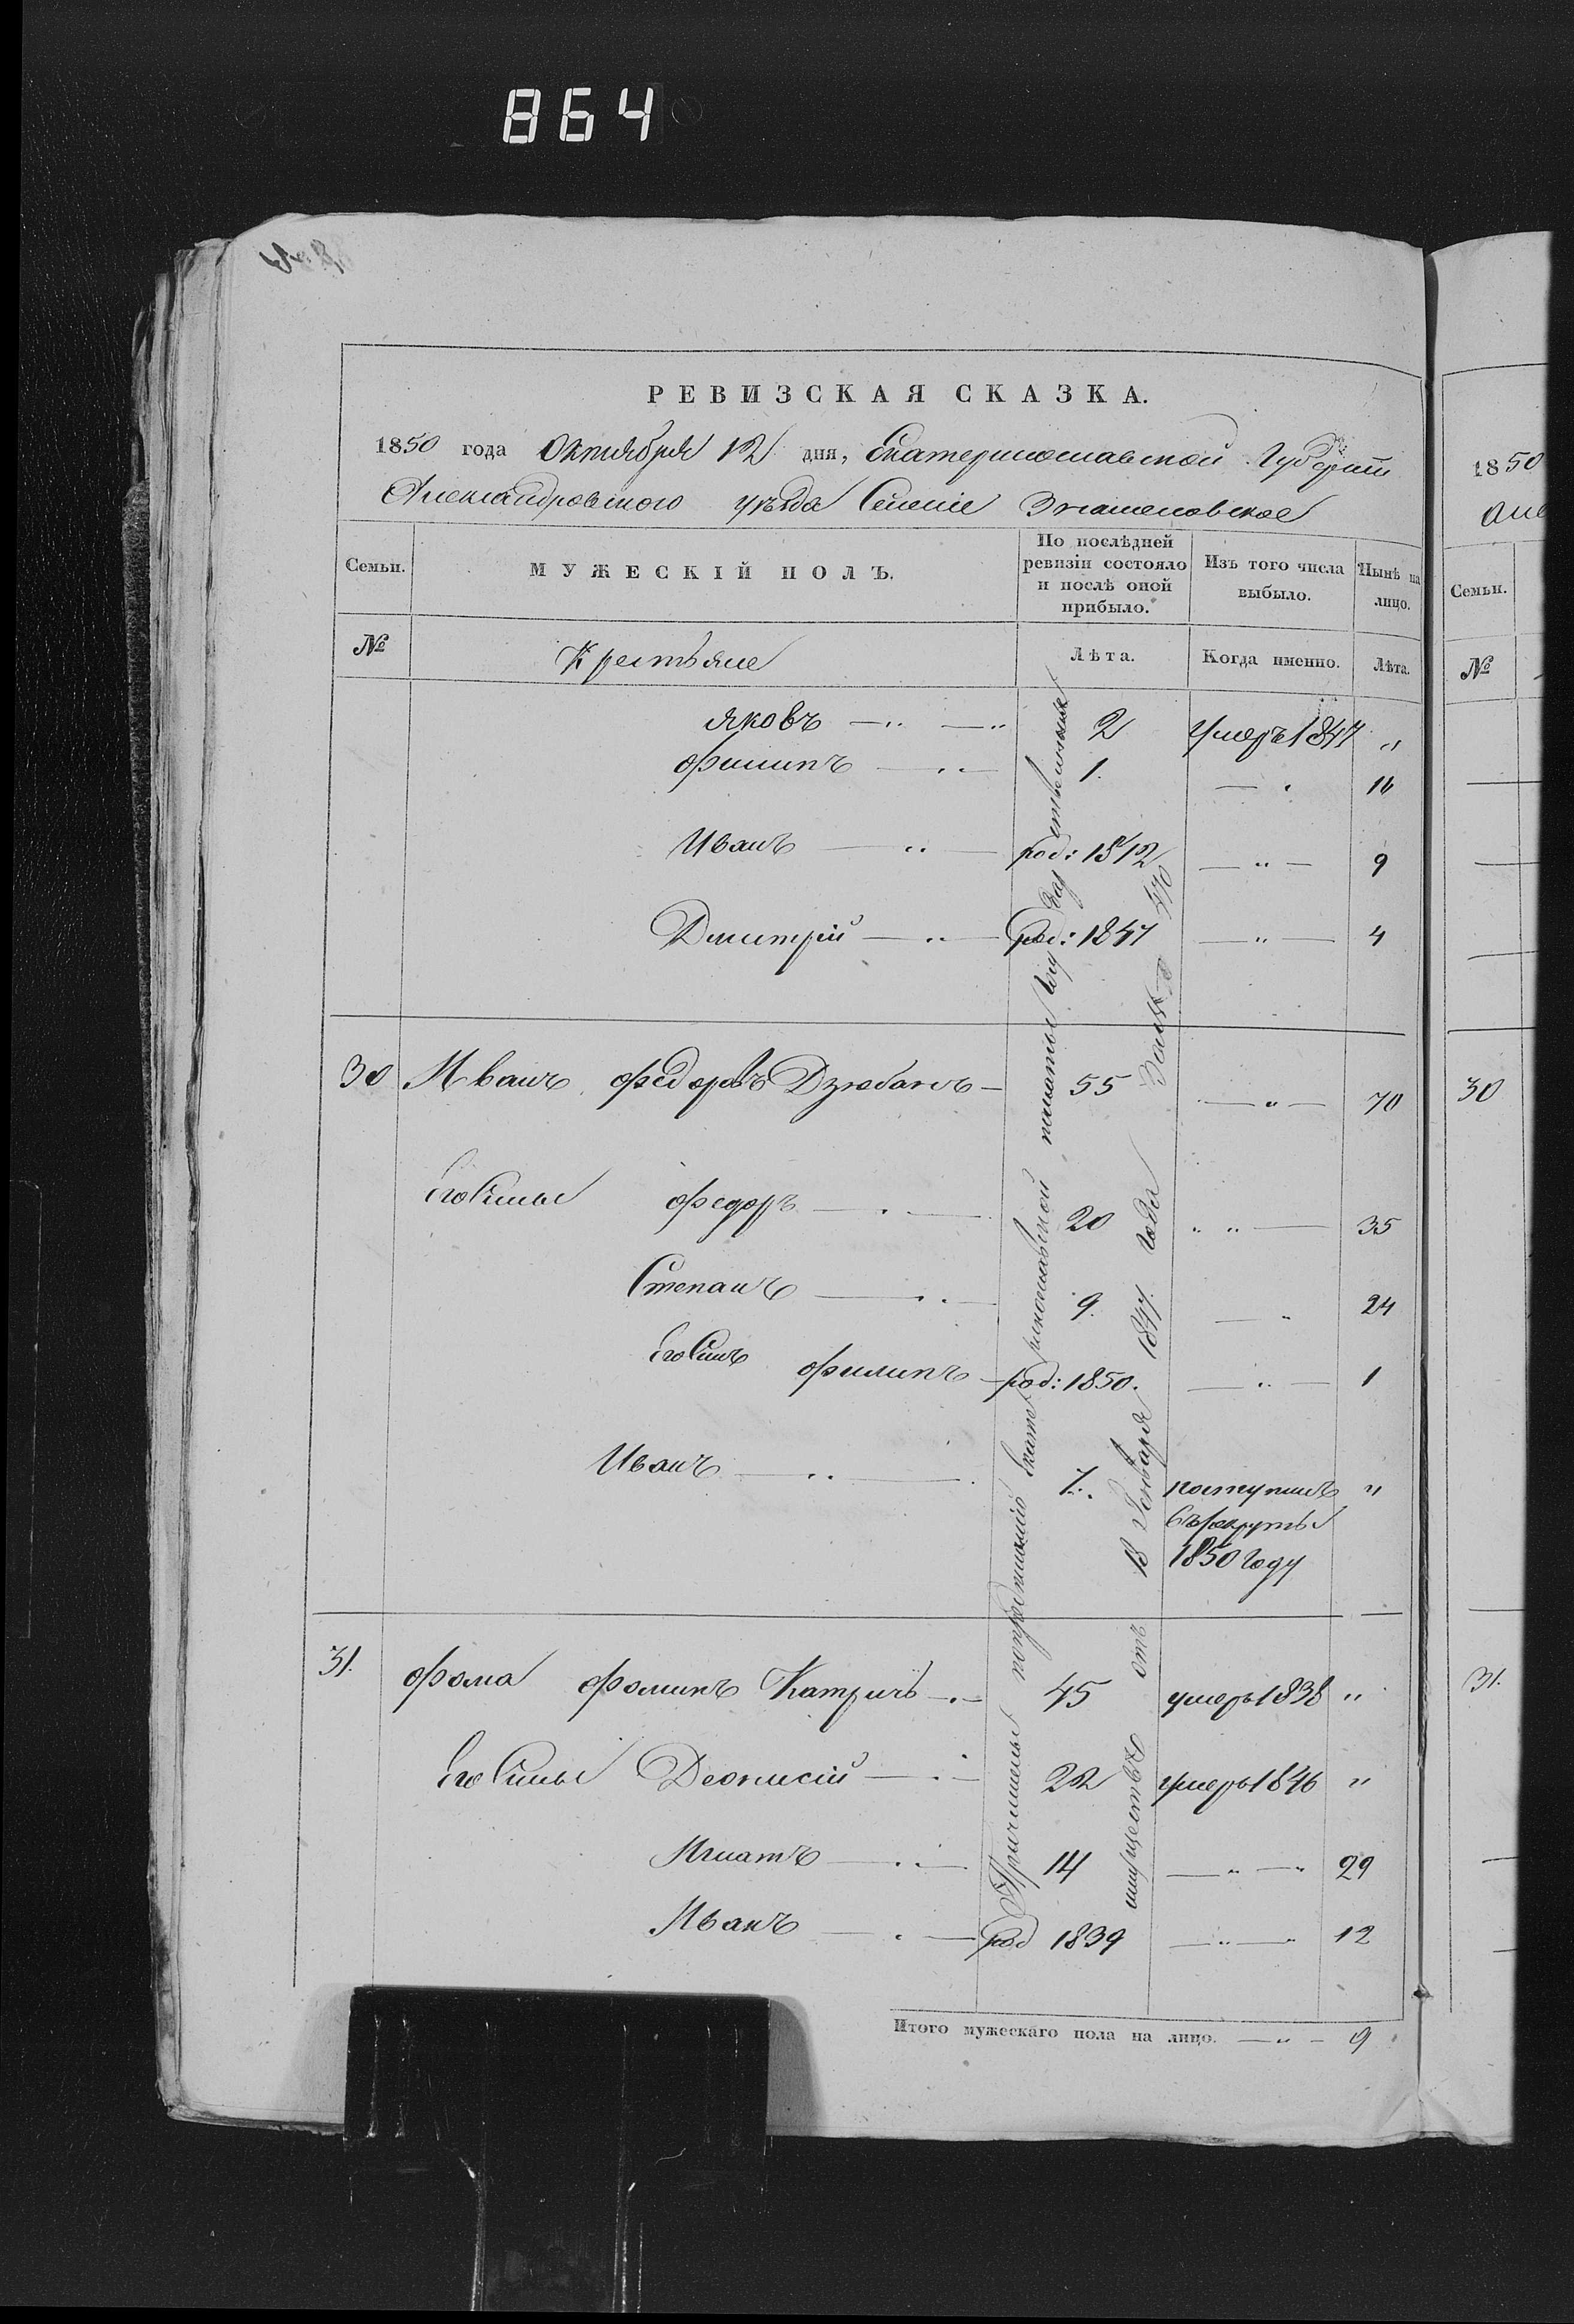 864
РЕВИЗСКАЯ СКАЗКА.
1850 года Октября 12 дня, Екатеринославской Губернии
Александровского уѣзда Селеніе Знаменовское
Семьи. МУЖЕСКІЙ ПОЛЪ. По послѣдней ревизіи состояло и послѣ оной прибыло. Изъ того числа выбыло. Нынѣ на лицо.
№ Крестьяне Лѣта. Когда именно. Лѣта.
Яковъ — „ — „ 2 Умеръ 1847 „
Филипъ — „ — 1. — „ 16
Иванъ — „ — род: 1842 — „ — 9
Дмитрій — „ — род: 1847 — „ — 4
30 Иванъ Федоровъ Дзюбанъ — 55 — „ — 70
Его Сыны Федоръ — „ — 20 „ „ — 35
Степанъ — „ — 9. — „ 24
Его Сынъ Филипъ — род: 1850. — „ — 1
Иванъ — „ — 7. поступилъ „
въ рекруты
1850 году
31. Фома Фоминъ Катричъ — „ — 45 умеръ 1838 „
Его Сыны Деонисій — „ — 22 умеръ 1846 „
Игнатъ — „ — 14 — „ — „ 29
Иванъ — „ — род 1839 — „ — „ 12
Причислены по предписанію Екатеринославской палаты Государственныхъ
имуществъ отъ 18 Генваря 1847 года За №
Итого мужескаго пола на лицо. — „ — 9
1850
Але
Семьи.
№
30
31.